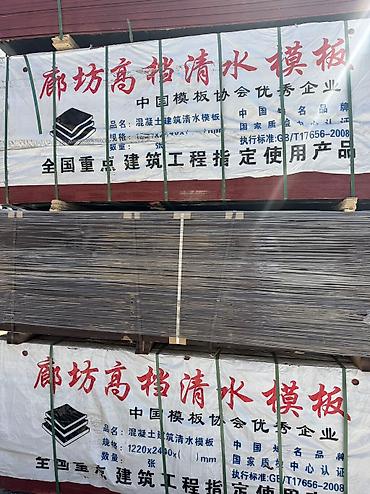 廊坊高档清水模板
中国模板协会优秀企业
品名：混凝土建筑清水模板
中国知名品牌
规格：1220x2440x( )mm
国家质检中心认证
数量： 张
执行标准:GB/T17656-2008
全国重点建筑工程指定使用产品
廊坊高档清水模板
中国模板协会优秀企业
品名：混凝土建筑清水模板
中国知名品牌
规格：1220x2440x( )mm
国家质检中心认证
数量： 张
执行标准:GB/T17656-2008
全国重点建筑工程指定使用